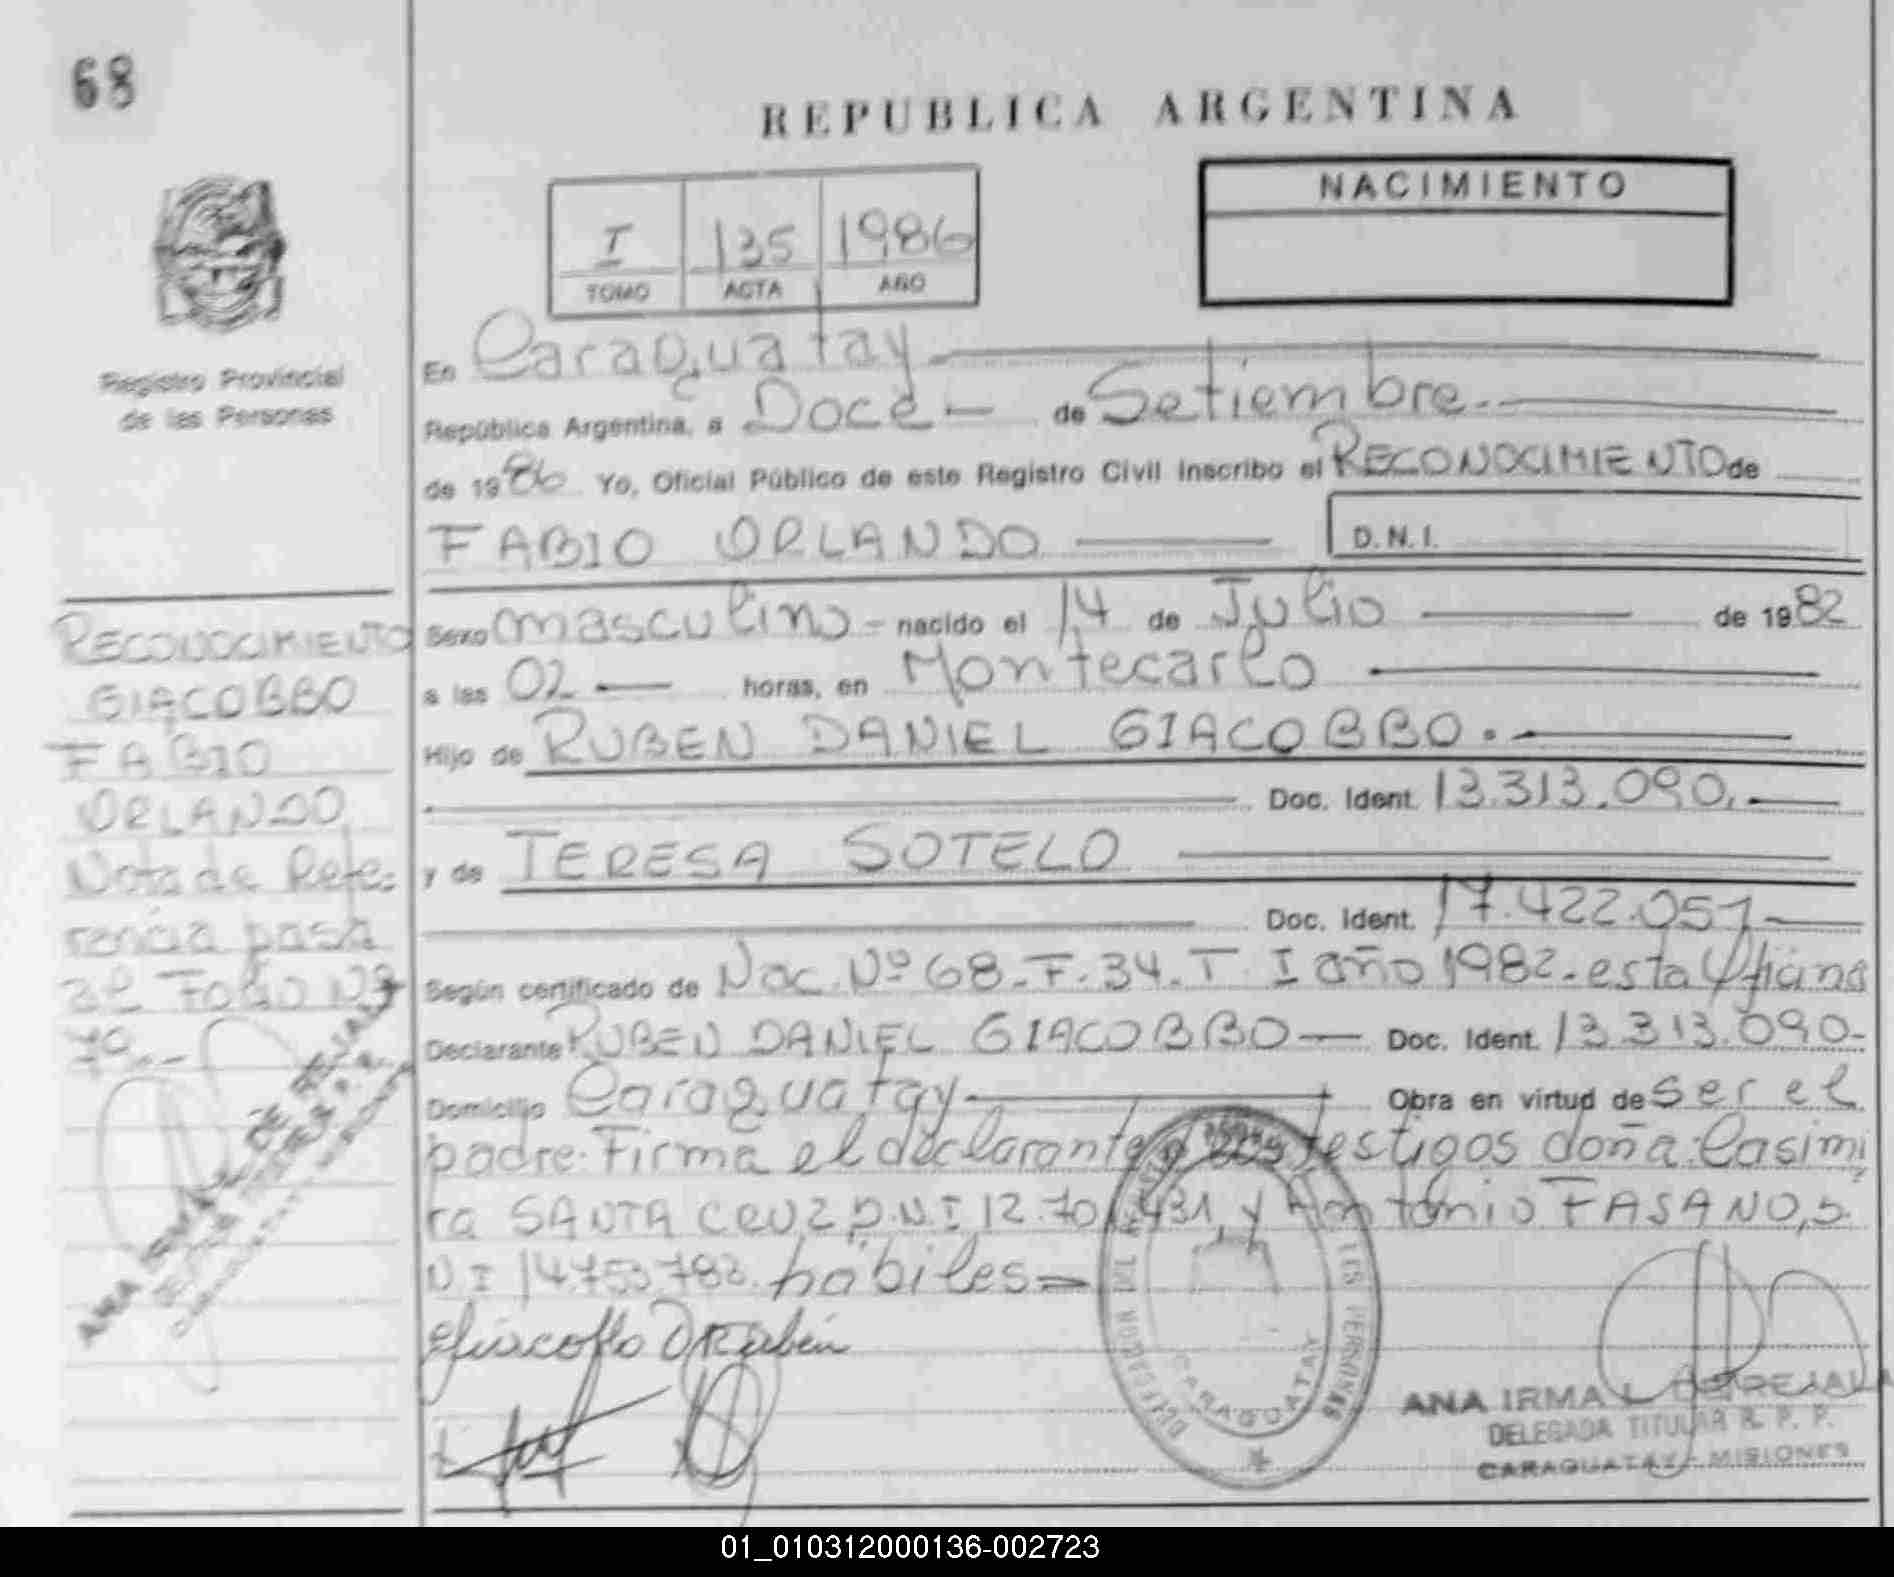 68
REPUBLICA ARGENTINA
NACIMIENTO
I 135 1986
TOMO ACTA AÑO
Registro Provincial
de las Personas
En Caraguatay
República Argentina, a Doce de Setiembre
de 1986 Yo, Oficial Público de este Registro Civil inscribo el RECONOCIMIENTO de
FABIO ORLANDO D.N.I.
RECONOCIMIENTO
GIACOBBO
FABIO
ORLANDO
Nota de Refe-
rencia pasa
al Folio Nº
70
Sexo masculino nacido el 14 de Julio de 1982
a las 02 horas, en Montecarlo
Hijo de RUBEN DANIEL GIACOBBO.
Doc. Ident. 13.313.090.
y de TERESA SOTELO
Doc. Ident. 17.422.051
Según certificado de Nac. Nº 68-F.34.T I año 1982. esta Oficina
Declarante RUBEN DANIEL GIACOBBO Doc. Ident. 13.313.090-
Domicilio Caraguatay Obra en virtud de ser el
padre. Firma el declarante testigos doña Casimi
ra SANTA CRUZ D.N.I 12.701.431, y Antonio FASANO, D.
N I 14.753.782. hábiles
Giacobbo D Rubén
CARAGUATAY
ANA IRMA L DE REJALA
DELEGADA TITULAR R. P. P.
CARAGUATAY - MISIONES
01_010312000136-002723